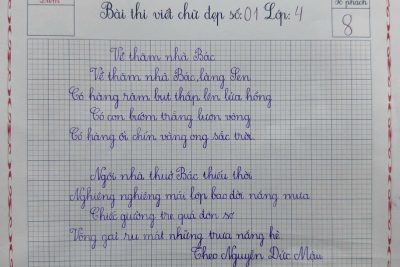 Điểm
Số phách
Bài thi viết chữ đẹp số: 01 Lớp: 4
8
Về thăm nhà Bác
Về thăm nhà Bác, làng Sen
Có hàng râm bụt thắp lên lửa hồng
Có con bướm trắng lượn vòng
Có hàng ổi chín vàng ong sắc trời.
Ngôi nhà thuở Bác thiếu thời
Nghiêng nghiêng mái lợp bao đời nắng mưa
Chiếc giường tre quá đơn sơ
Võng gai ru mát những trưa nắng hè.
Theo Nguyễn Đức Mậu